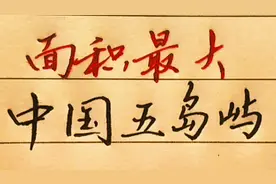 面积最大
中国五岛屿